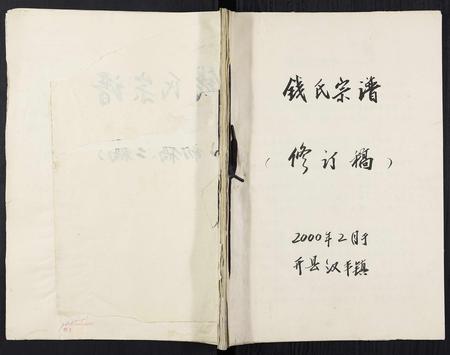 钱氏宗谱
(修订稿)
2000年2月于
开县汉丰镇
钱氏宗谱